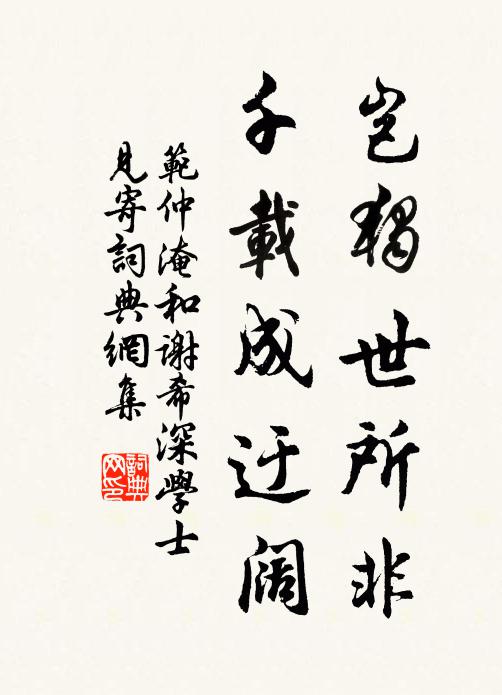 豈獨世所非
千載成迂闊
範仲淹和謝希深學士
見寄詞典網集
詞典
网印